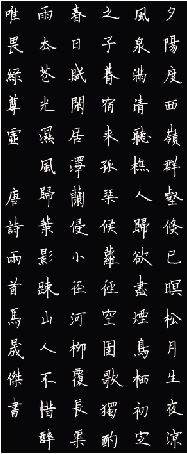 夕陽度西嶺群壑倏已暝松月生夜涼
風泉滿清聽樵人歸欲盡煙鳥栖初定
之子朞宿來孤琴候蘿徑空園歌獨酌
春日賦閑居澤蘭侵小徑河柳覆長渠
雨去花光濕風歸葉影踈山人不惜醉
惟畏綠尊虛 唐詩兩首馬晟傑書